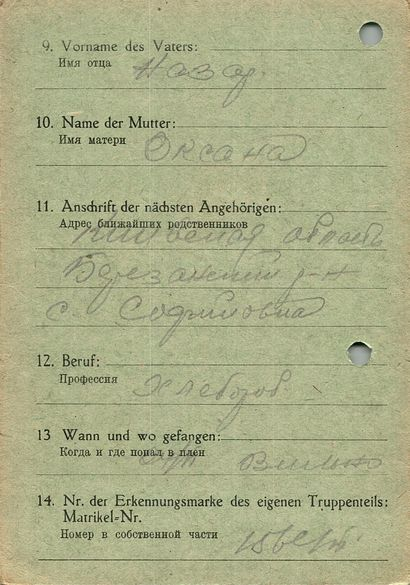 9. Vorname des Vaters:
Имя отца
Назар
10. Name der Mutter:
Имя матери
Оксана
11. Anschrift der nächsten Angehörigen:
Адрес ближайших родственников
область
Березанский р-н
с. Софиловка
12. Beruf:
Профессия
Хлебороб
13 Wann und wo gefangen:
Когда и где попал в плен
14. Nr. der Erkennungsmarke des eigenen Truppenteils:
Matrikel-Nr.
Номер в собственной части